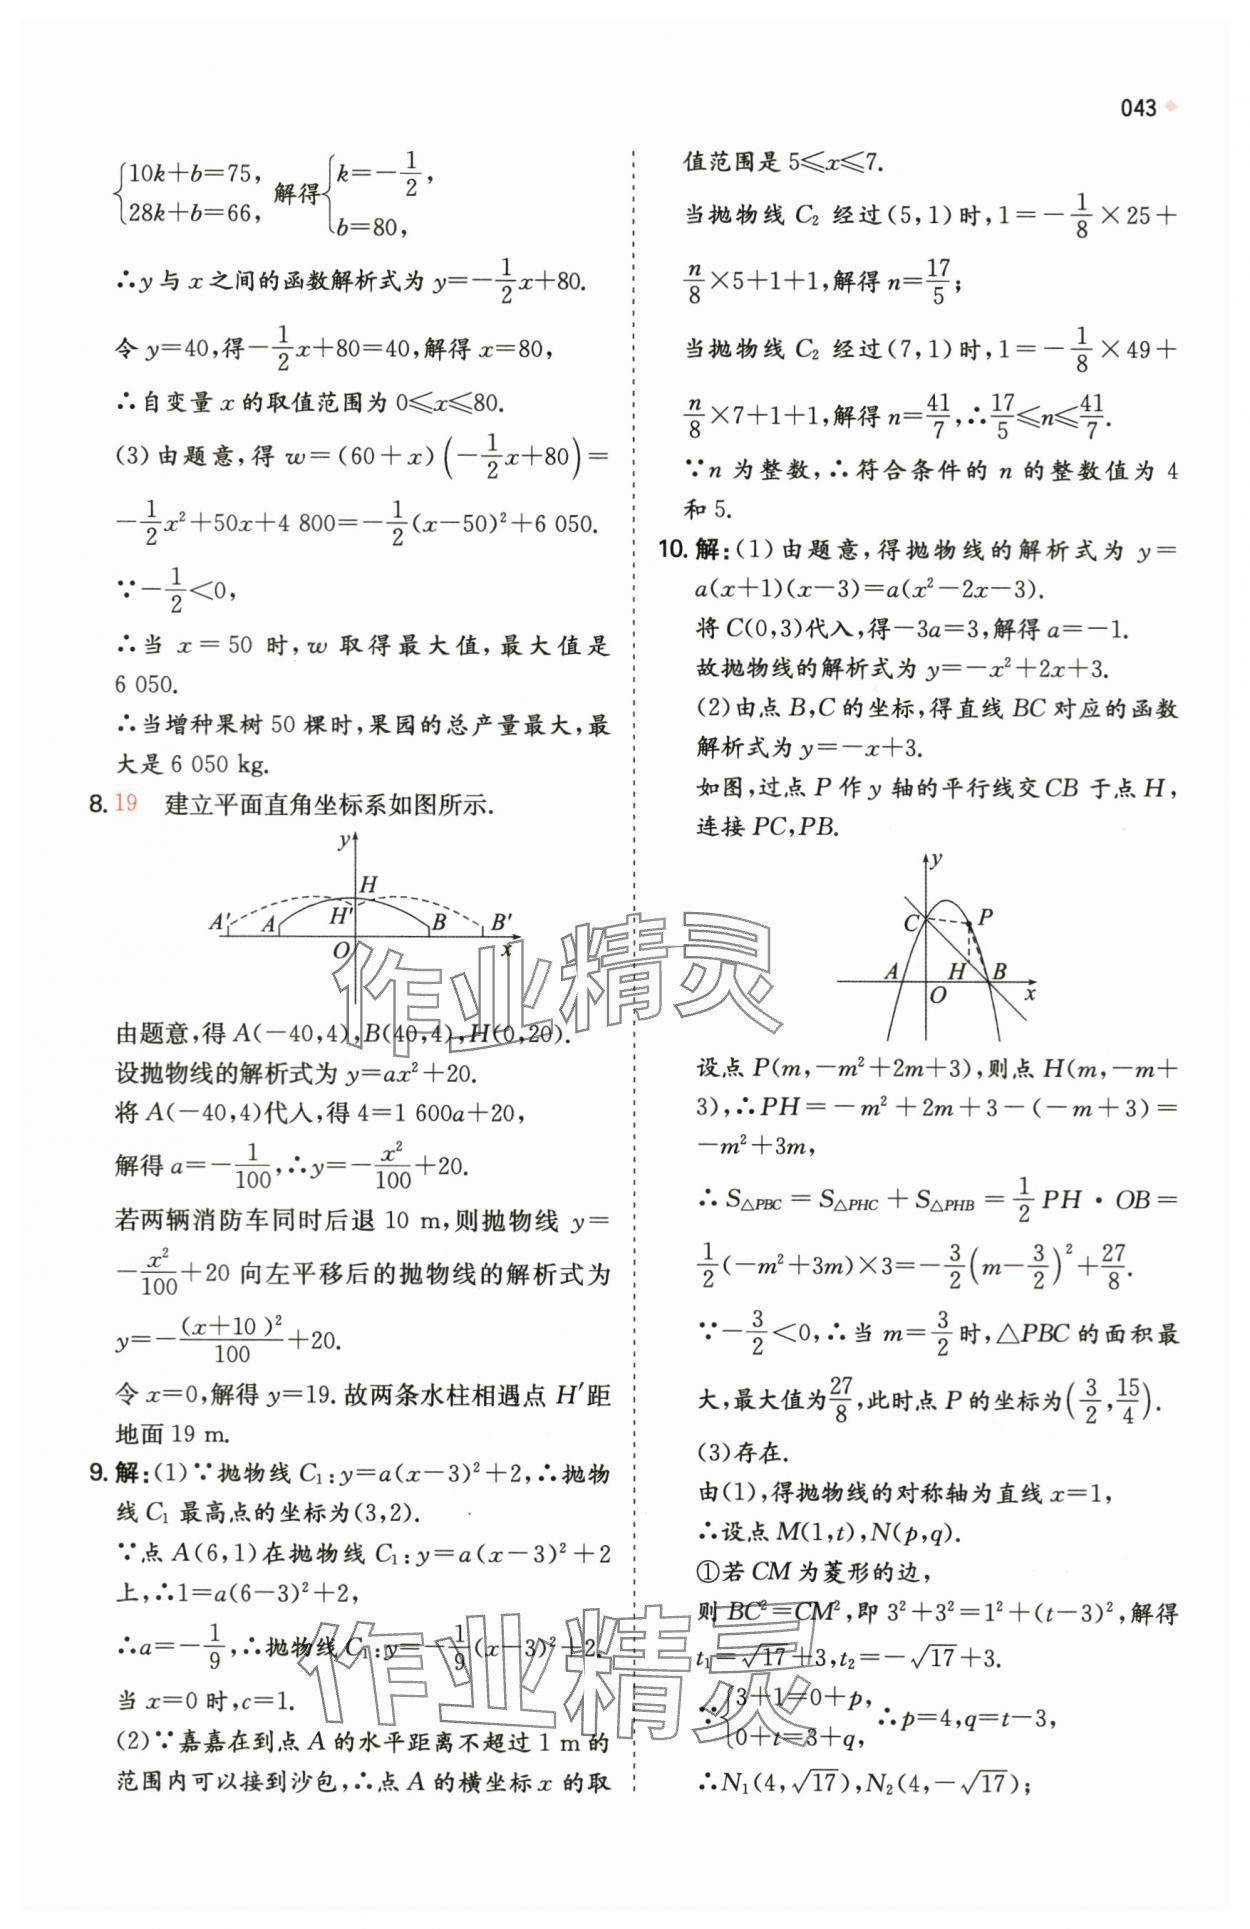 043
{10k+b=75, 28k+b=66, 解得{k=-1/2, b=80,
∴y与x之间的函数解析式为y=-1/2x+80.
令y=40,得-1/2x+80=40,解得x=80,
∴自变量x的取值范围为0≤x≤80.
(3)由题意,得w=(60+x)(-1/2x+80)=
-1/2x²+50x+4 800=-1/2(x-50)²+6 050.
∵-1/2<0,
∴当x=50时,w取得最大值,最大值是
6 050.
∴当增种果树50棵时,果园的总产量最大,最
大是6 050 kg.
8. 19 建立平面直角坐标系如图所示.
y
H
A′ A H′ B B′
O x
由题意,得A(-40,4),B(40,4),H(0,20).
设抛物线的解析式为y=ax²+20.
将A(-40,4)代入,得4=1 600a+20,
解得a=-1/100,∴y=-x²/100+20.
若两辆消防车同时后退10 m,则抛物线y=
-x²/100+20向左平移后的抛物线的解析式为
y=-(x+10)²/100+20.
令x=0,解得y=19.故两条水柱相遇点H′距
地面19 m.
9. 解:(1)∵抛物线C₁:y=a(x-3)²+2,∴抛物
线C₁最高点的坐标为(3,2).
∵点A(6,1)在抛物线C₁:y=a(x-3)²+2
上,∴1=a(6-3)²+2,
∴a=-1/9,∴抛物线C₁:y=-1/9(x-3)²+2.
当x=0时,c=1.
(2)∵嘉嘉在到点A的水平距离不超过1 m的
范围内可以接到沙包,∴点A的横坐标x的取
值范围是5≤x≤7.
当抛物线C₂经过(5,1)时,1=-1/8×25+
n/8×5+1+1,解得n=17/5;
当抛物线C₂经过(7,1)时,1=-1/8×49+
n/8×7+1+1,解得n=41/7,∴17/5≤n≤41/7.
∵n为整数,∴符合条件的n的整数值为4
和5.
10. 解:(1)由题意,得抛物线的解析式为y=
a(x+1)(x-3)=a(x²-2x-3).
将C(0,3)代入,得-3a=3,解得a=-1.
故抛物线的解析式为y=-x²+2x+3.
(2)由点B,C的坐标,得直线BC对应的函数
解析式为y=-x+3.
如图,过点P作y轴的平行线交CB于点H,
连接PC,PB.
y
C P
A H B
O x
设点P(m,-m²+2m+3),则点H(m,-m+
3),∴PH=-m²+2m+3-(-m+3)=
-m²+3m,
∴S△PBC=S△PHC+S△PHB=1/2PH·OB=
1/2(-m²+3m)×3=-3/2(m-3/2)²+27/8.
∵-3/2<0,∴当m=3/2时,△PBC的面积最
大,最大值为27/8,此时点P的坐标为(3/2,15/4).
(3)存在.
由(1),得抛物线的对称轴为直线x=1,
∴设点M(1,t),N(p,q).
①若CM为菱形的边,
则BC²=CM²,即3²+3²=1²+(t-3)²,解得
t₁=√17+3,t₂=-√17+3.
∵{3+1=0+p, 0+t=3+q, ∴p=4,q=t-3,
∴N₁(4,√17),N₂(4,-√17);
作业精灵
作业精灵